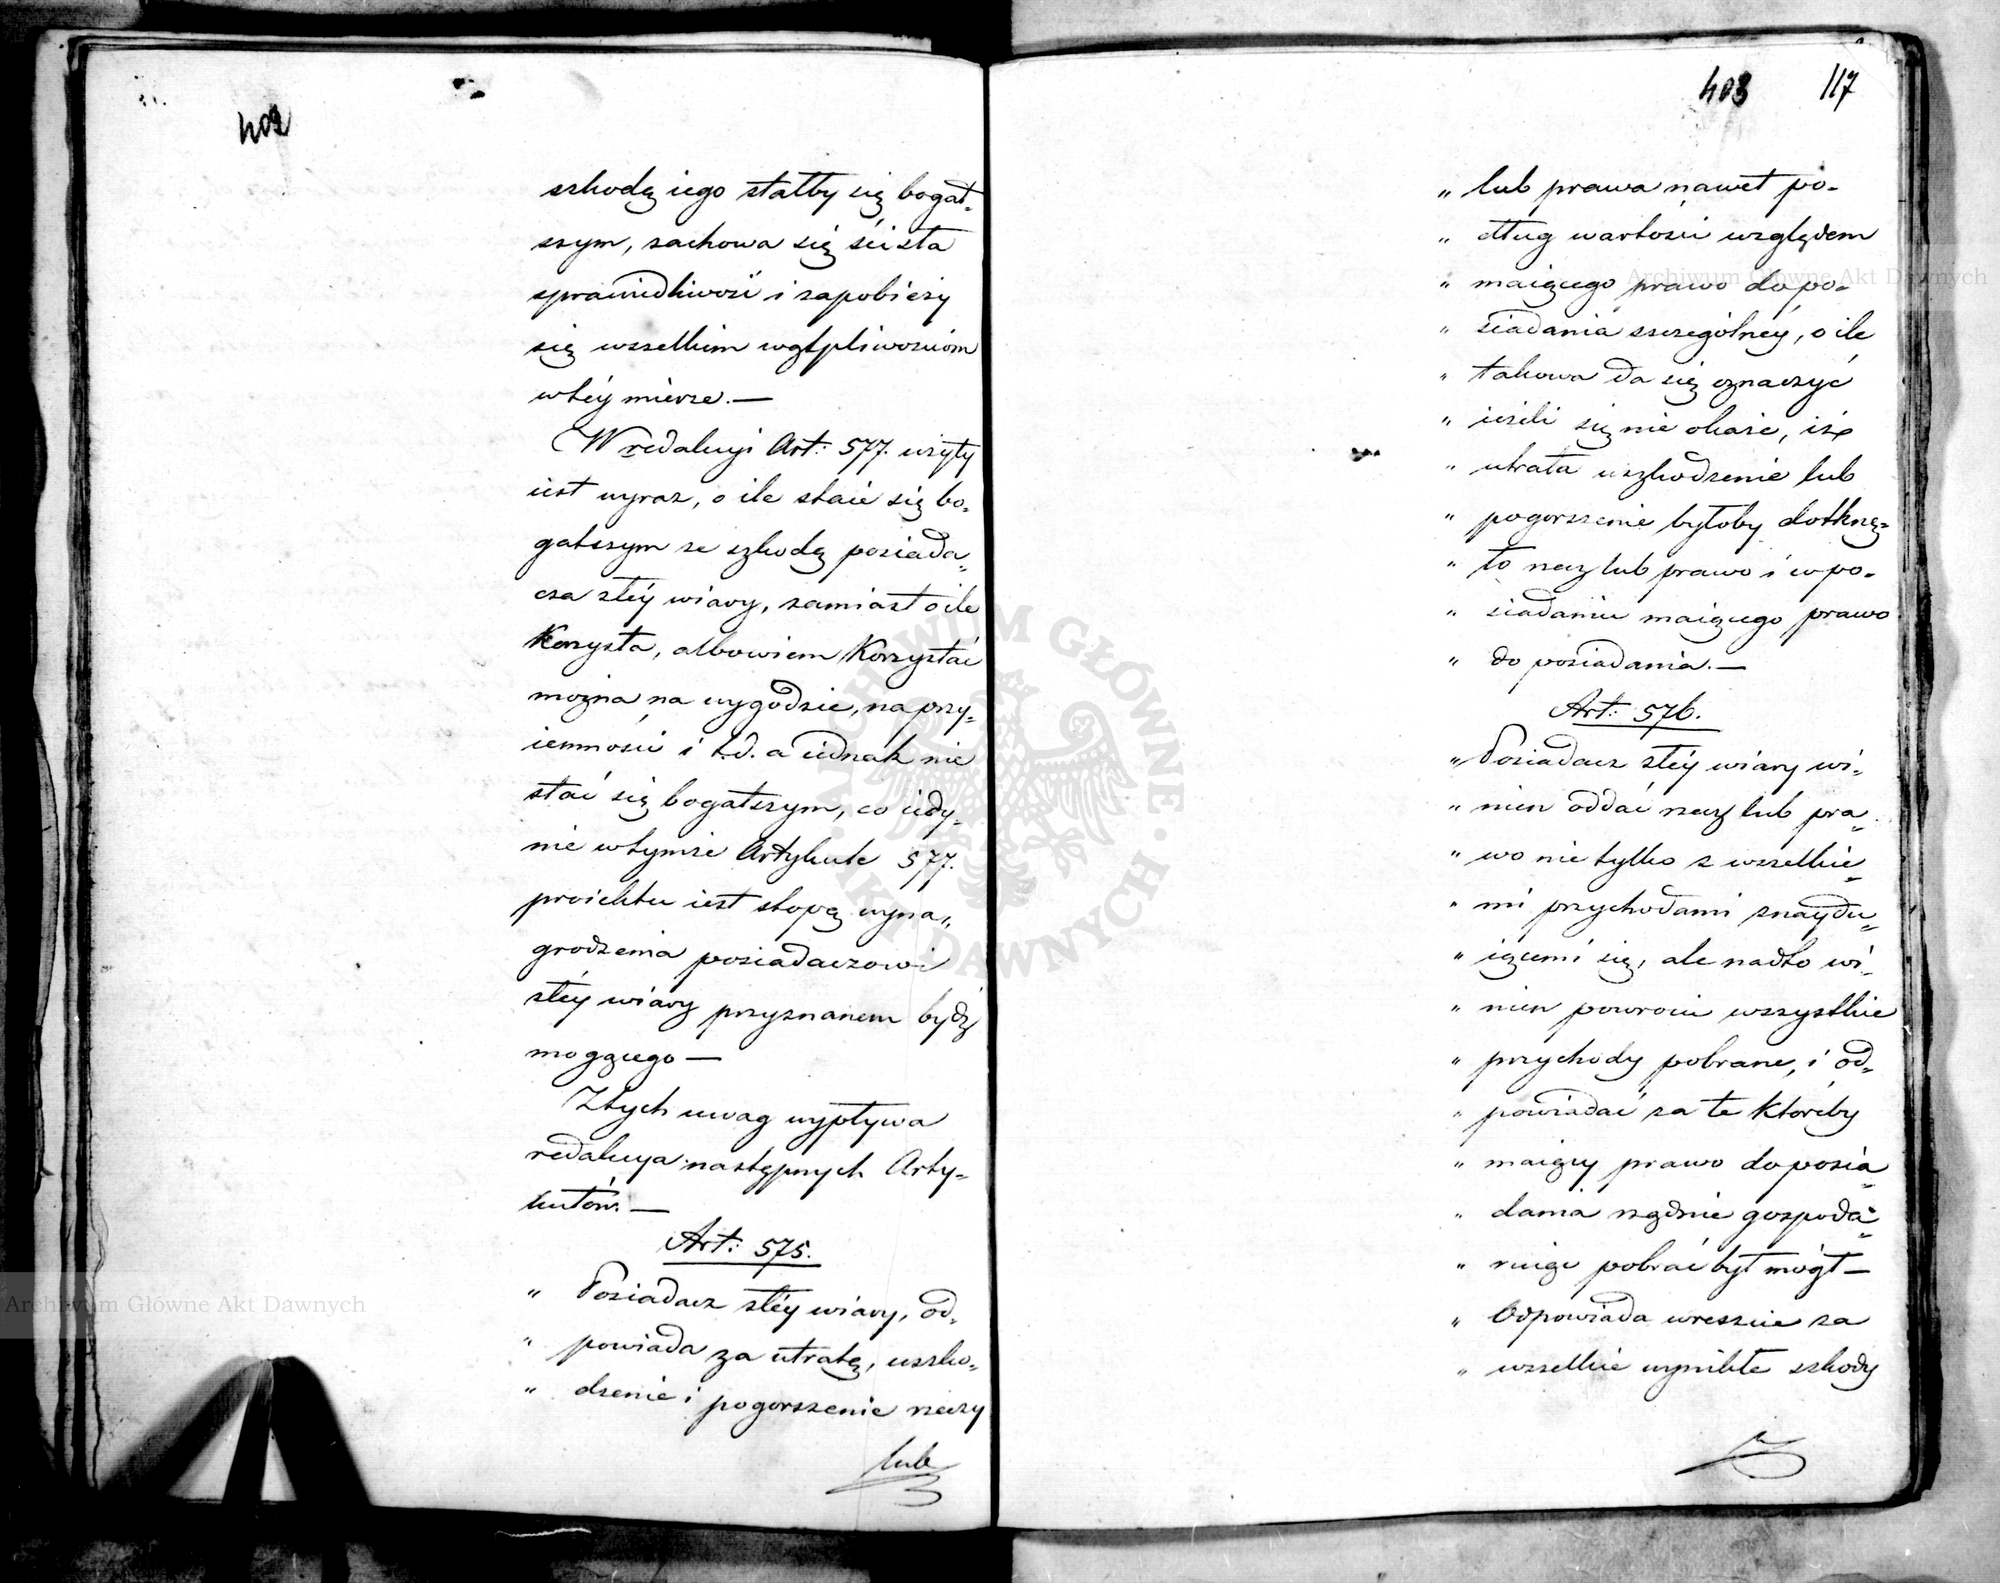 402
szkodą iego stałby się bogat-
szym, zachowa się ścisła
sprawiedliwość i zapobieży
się wszelkim wątpliwościom
w téy mierze. —
W redakcyi Art: 577. użyty
iest wyraz, o ile staie się bo-
gatszym ze szkodą posiada-
cza złéy wiary, zamiast o ile
Korzysta, albowiem Korzystać
można na wygodzie, na przy-
iemności i t.d. a iednak nie
stać się bogatszym, co iedy-
nie w tymże Artykule 577.
proiektu iest stopą wyna-
grodzenia posiadaczowi
złéy wiary przyznanem bydź
mogącego —
Z tych uwag wypływa
redakcya następnych Arty-
kułów. —
Art: 575.
„ Posiadacz złéy wiary, od-
„ powiada za utratę, uszko-
„ dzenie i pogorszenie rzeczy
lub
403 117
„ lub prawa nawet po-
„ dług wartości względem
„ maiącego prawo do po-
„ siadania szczególnéy, o ile
„ takowa da się oznaczyć
„ ieżeli się nie okaże, iż
„ utrata uszkodzenie lub
„ pogorszenie byłoby dotknę-
„ ło rzecz lub prawo i w po-
„ siadaniu maiącego prawo
„ do posiadania. —
Art: 576.
„ Posiadacz złéy wiary wi-
„ nien oddać rzecz lub pra-
„ wo nie tylko z wszelkie-
„ mi przychodami znaydu-
„ iącemi się, ale nadto wi-
„ nien powrócić wszystkie
„ przychody pobrane, i od-
„ powiadać za te któreby
„ maiący prawo do posia-
„ dania rządnie gospoda-
„ ruiąc pobrać był mógł —
„ Odpowiada wreszcie za
„ wszelkie wynikłe szkody
Archiwum Główne Akt Dawnych
Archiwum Główne Akt Dawnych
ARCHIWUM GŁÓWNE · AKT DAWNYCH ·